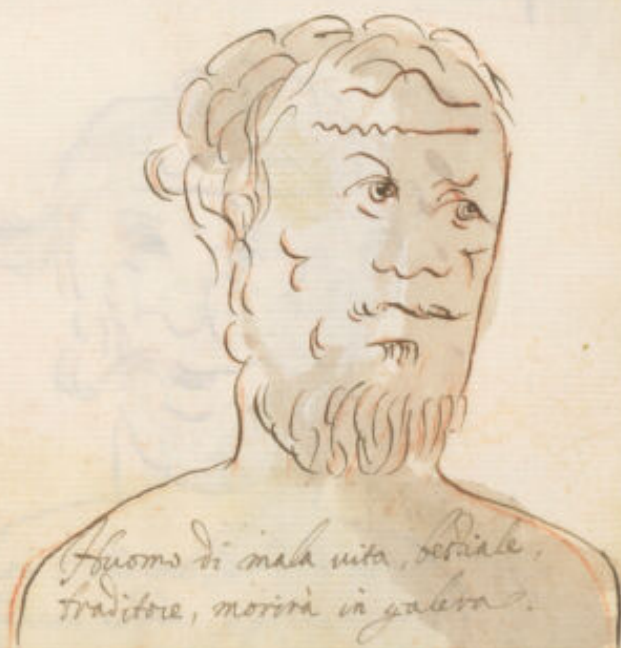 Huomo di mala vita, bestiale,
traditore, morirà in galera.